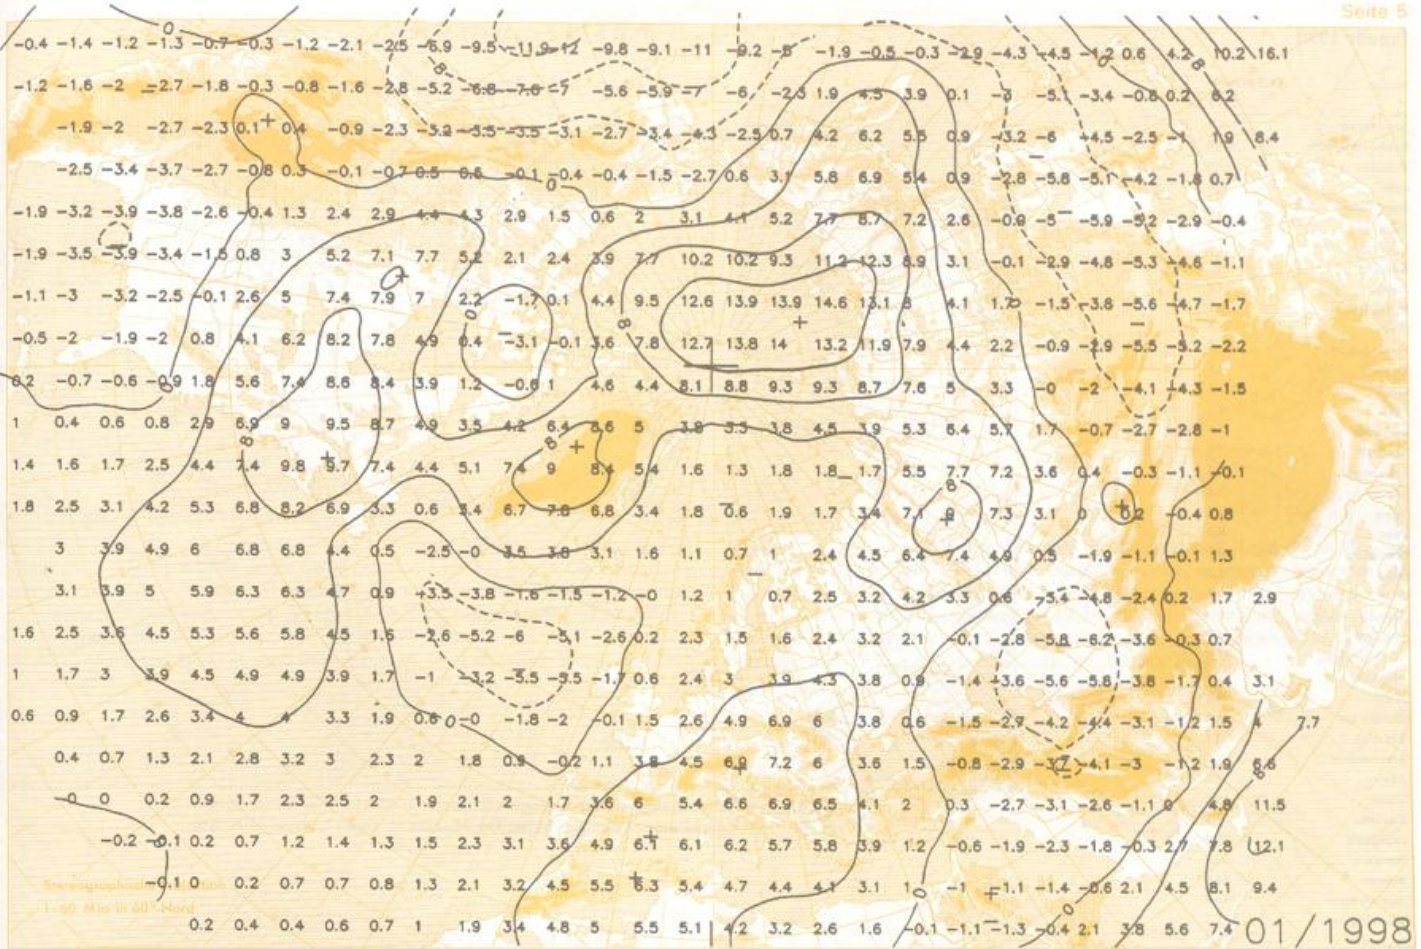 Seite 5
-0.4 -1.4 -1.2 -1.3 -0.7 -0.3 -1.2 -2.1 -2.5 -6.9 -9.5 -11.9 -12 -9.8 -9.1 -11 -9.2 -5 -1.9 -0.5 -0.3 -2.9 -4.3 -4.5 -1.2 0.6 4.2 10.2 16.1
-1.2 -1.6 -2 -2.7 -1.8 -0.3 -0.8 -1.6 -2.8 -5.2 -6.8 -7.6 -7 -5.6 -5.9 -7 -6 -2.3 1.9 4.5 3.9 0.1 -3 -5.1 -3.4 -0.8 0.2 6.2
-1.9 -2 -2.7 -2.3 0.1 0.4 -0.9 -2.3 -3.2 -3.5 -3.5 -3.1 -2.7 -3.4 -4.3 -2.5 0.7 4.2 6.2 5.5 0.9 -3.2 -6 -4.5 -2.5 -1 1.9 8.4
-2.5 -3.4 -3.7 -2.7 -0.8 0.3 -0.1 -0.7 0.5 0.6 -0.1 -0.4 -0.4 -1.5 -2.7 0.6 3.1 5.8 6.9 5.4 0.9 -2.8 -5.8 -5.1 -4.2 -1.8 0.7
-1.9 -3.2 -3.9 -3.8 -2.6 -0.4 1.3 2.4 2.9 4.4 4.3 2.9 1.5 0.6 2 3.1 4.1 5.2 7.7 8.7 7.2 2.6 -0.9 -5 -5.9 -5.2 -2.9 -0.4
-1.9 -3.5 -3.9 -3.4 -1.5 0.8 3 5.2 7.1 7.7 5.2 2.1 2.4 3.9 7.7 10.2 10.2 9.3 11.2 12.3 8.9 3.1 -0.1 -2.9 -4.8 -5.3 -4.6 -1.1
-1.1 -3 -3.2 -2.5 -0.1 2.6 5 7.4 7.9 7 2.2 -1.7 0.1 4.4 9.5 12.6 13.9 13.9 14.6 13.1 8 4.1 1.7 -1.5 -3.8 -5.6 -4.7 -1.7
-0.5 -2 -1.9 -2 0.8 4.1 6.2 8.2 7.8 4.9 0.4 -3.1 -0.1 3.6 7.8 12.7 13.8 14 13.2 11.9 7.9 4.4 2.2 -0.9 -2.9 -5.5 -5.2 -2.2
0.2 -0.7 -0.6 -0.9 1.8 5.6 7.4 8.6 8.4 3.9 1.2 -0.6 1 4.6 4.4 8.1 8.8 9.3 9.3 8.7 7.6 5 3.3 -0 -2 -4.1 -4.3 -1.5
1 0.4 0.6 0.8 2.9 6.9 9 9.5 8.7 4.9 3.5 4.2 6.4 8.6 5 3.8 3.3 3.8 4.5 3.9 5.3 6.4 5.7 1.7 -0.7 -2.7 -2.8 -1
1.4 1.6 1.7 2.5 4.4 7.4 9.8 9.7 7.4 4.4 5.1 7.4 9 8.4 5.4 1.6 1.3 1.8 1.8 1.7 5.5 7.7 7.2 3.6 0.4 -0.3 -1.1 -0.1
1.8 2.5 3.1 4.2 5.3 6.8 8.2 6.9 3.3 0.6 3.4 6.7 7.8 6.8 3.4 1.8 0.6 1.9 1.7 3.4 7.1 9 7.3 3.1 0 0.2 -0.4 0.8
3 3.9 4.9 6 6.8 6.8 4.4 0.5 -2.5 -0 3.5 3.8 3.1 1.6 1.1 0.7 1 2.4 4.5 6.4 7.4 4.9 0.5 -1.9 -1.1 -0.1 1.3
3.1 3.9 5 5.9 6.3 6.3 4.7 0.9 -3.5 -3.8 -1.6 -1.5 -1.2 -0 1.2 1 0.7 2.5 3.2 4.2 3.3 0.6 -3.4 -4.8 -2.4 0.2 1.7 2.9
1.6 2.5 3.6 4.5 5.3 5.6 5.8 4.5 1.6 -2.6 -5.2 -6 -5.1 -2.6 0.2 2.3 1.5 1.6 2.4 3.2 2.1 -0.1 -2.8 -5.8 -6.2 -3.6 -0.3 0.7
1 1.7 3 3.9 4.5 4.9 4.9 3.9 1.7 -1 -3.2 -5.5 -5.5 -1.7 0.6 2.4 3 3.9 4.3 3.8 0.9 -1.4 -3.6 -5.6 -5.8 -3.8 -1.7 0.4 3.1
0.6 0.9 1.7 2.6 3.4 4 4 3.3 1.9 0.6 -0 -1.8 -2 -0.1 1.5 2.6 4.9 6.9 6 3.8 0.6 -1.5 -2.7 -4.2 -4.4 -3.1 -1.2 1.5 4 7.7
0.4 0.7 1.3 2.1 2.8 3.2 3 2.3 2 1.8 0.9 -0.2 1.1 3.8 4.5 6.9 7.2 6 3.6 1.5 -0.8 -2.9 -3.7 -4.1 -3 -1.2 1.9 6.8
-0 0 0.2 0.9 1.7 2.3 2.5 2 1.9 2.1 2 1.7 3.6 6 5.4 6.6 6.9 6.5 4.1 2 0.3 -2.7 -3.1 -2.6 -1.1 0 4.8 11.5
-0.2 -0.1 0.2 0.7 1.2 1.4 1.3 1.5 2.3 3.1 3.6 4.9 6.1 6.1 6.2 5.7 5.8 3.9 1.2 -0.6 -1.9 -2.3 -1.8 -0.3 2.7 7.8 12.1
-0.1 0 0.2 0.7 0.7 0.8 1.3 2.1 3.2 4.5 5.5 6.3 5.4 4.7 4.4 4.1 3.1 1 -1 -1.1 -1.4 -0.6 2.1 4.5 8.1 9.4
1:60 Mio in 60° Nord
0.2 0.4 0.4 0.6 0.7 1 1.9 3.4 4.8 5 5.5 5.1 4.2 3.2 2.6 1.6 -0.1 -1.1 -1.3 -0.4 2.1 3.8 5.6 7.4
01/1998